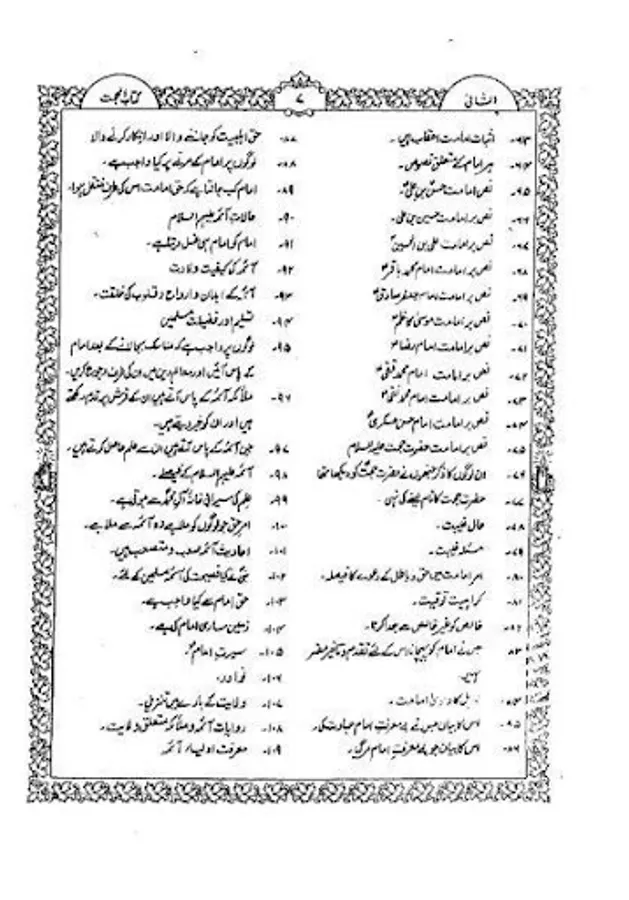 الشافی
۷
کتاب الحجت
۶۳- اثبات امامت اعقاب میں۔
۶۴- ہر امام کے متعلق نصوص۔
۶۵- نص امامت حسن بن علیؑ
۶۶- نص بر امامت حسین بن علی۔
۶۷- نص بر امامت علی بن الحسینؑ
۶۸- نص بر امامت امام محمد باقرؑ
۶۹- نص بر امامت امام جعفر صادقؑ
۷۰- نص بر امامت موسیٰ کاظمؑ
۷۱- نص بر امامت امام رضاؑ
۷۲- نص بر امامت امام محمد تقیؑ
۷۳- نص بر امامت امام محمد نقیؑ
۷۴- نص بر امامت امام حسن عسکریؑ
۷۵- نص بر امامت حضرت حجت علیہ السلام
۷۶- ان لوگوں کا ذکر جنھوں نے حضرت حجتؑ کو دیکھا تھا
۷۷- حضرت حجت کا نام لینے کی نہی۔
۷۸- حال غیبت۔
۷۹- مسئلہ غیبت۔
۸۰- امر امامت میں حق و باطل کے دعوے کا فیصلہ۔
۸۱- کراہیت توقیت۔
۸۲- خالص کو غیر خالص سے جدا کرنا۔
۸۳- جس نے امام کو پہچانا اس کے لئے تقدم و تاخیر مضر
نہیں۔
۸۴- امامت۔
۸۵- اس کا بیان جس نے بے معرفتِ امام عبادت کی۔
۸۶- اس کا بیان جو بے معرفت امام مر گیا۔
۸۷- حق اہلبیت کو جاننے والا اور انکار کرنے والا
۸۸- لوگوں پر امام کے مرنے پر کیا واجب ہے۔
۸۹- امام کب جانتا ہے کہ حق امامت اس کی طرف منتقل ہوا۔
۹۰- حالات آئمہ علیہم السلام
۹۱- امام کو امام ہی غسل دیتا ہے۔
۹۲- آئمہ کی کیفیت ولادت
۹۳- آئمہ کے ابدان و ارواح و قلوب کی خلقت۔
۹۴- تسلیم اور فضیلت مسلمین
۹۵- لوگوں پر واجب ہے کہ مناسک بجالانے کے بعد امام
کے پاس آئیں اور معالم دین میں ان کی طرف رجوع کریں۔
۹۶- ملائکہ آئمہ کے پاس آتے ہیں ان کے فرش پر قدم رکھتے
ہیں اور ان کو خبر دیتے ہیں۔
۹۷- جن آئمہ کے پاس آتے ہیں ان سے علم حاصل کرتے ہیں۔
۹۸- آئمہ علیہم السلام کے فیصلے۔
۹۹- علم کی سیرابی خانۂ آل محمدؑ سے ہوتی ہے۔
۱۰۰- امر حق جو لوگوں کو ملا ہے وہ آئمہ سے ملا ہے۔
۱۰۱- احادیث آئمہ صعب و مستصعب ہیں۔
۱۰۲- نبیؐ نے کیا نصیحت کی آئمہ مسلمین کے لئے۔
۱۰۳- حق امام سے کیا واجب ہے۔
۱۰۴- زمین ساری امام کی ہے۔
۱۰۵- سیرت امامؑ
۱۰۶- نوادر۔
۱۰۷- ولایت کے بارے میں تنزیل۔
۱۰۸- روایات آئمہ و ملائکہ متعلق ولایت۔
۱۰۹- معرفت اولیاء آئمہ